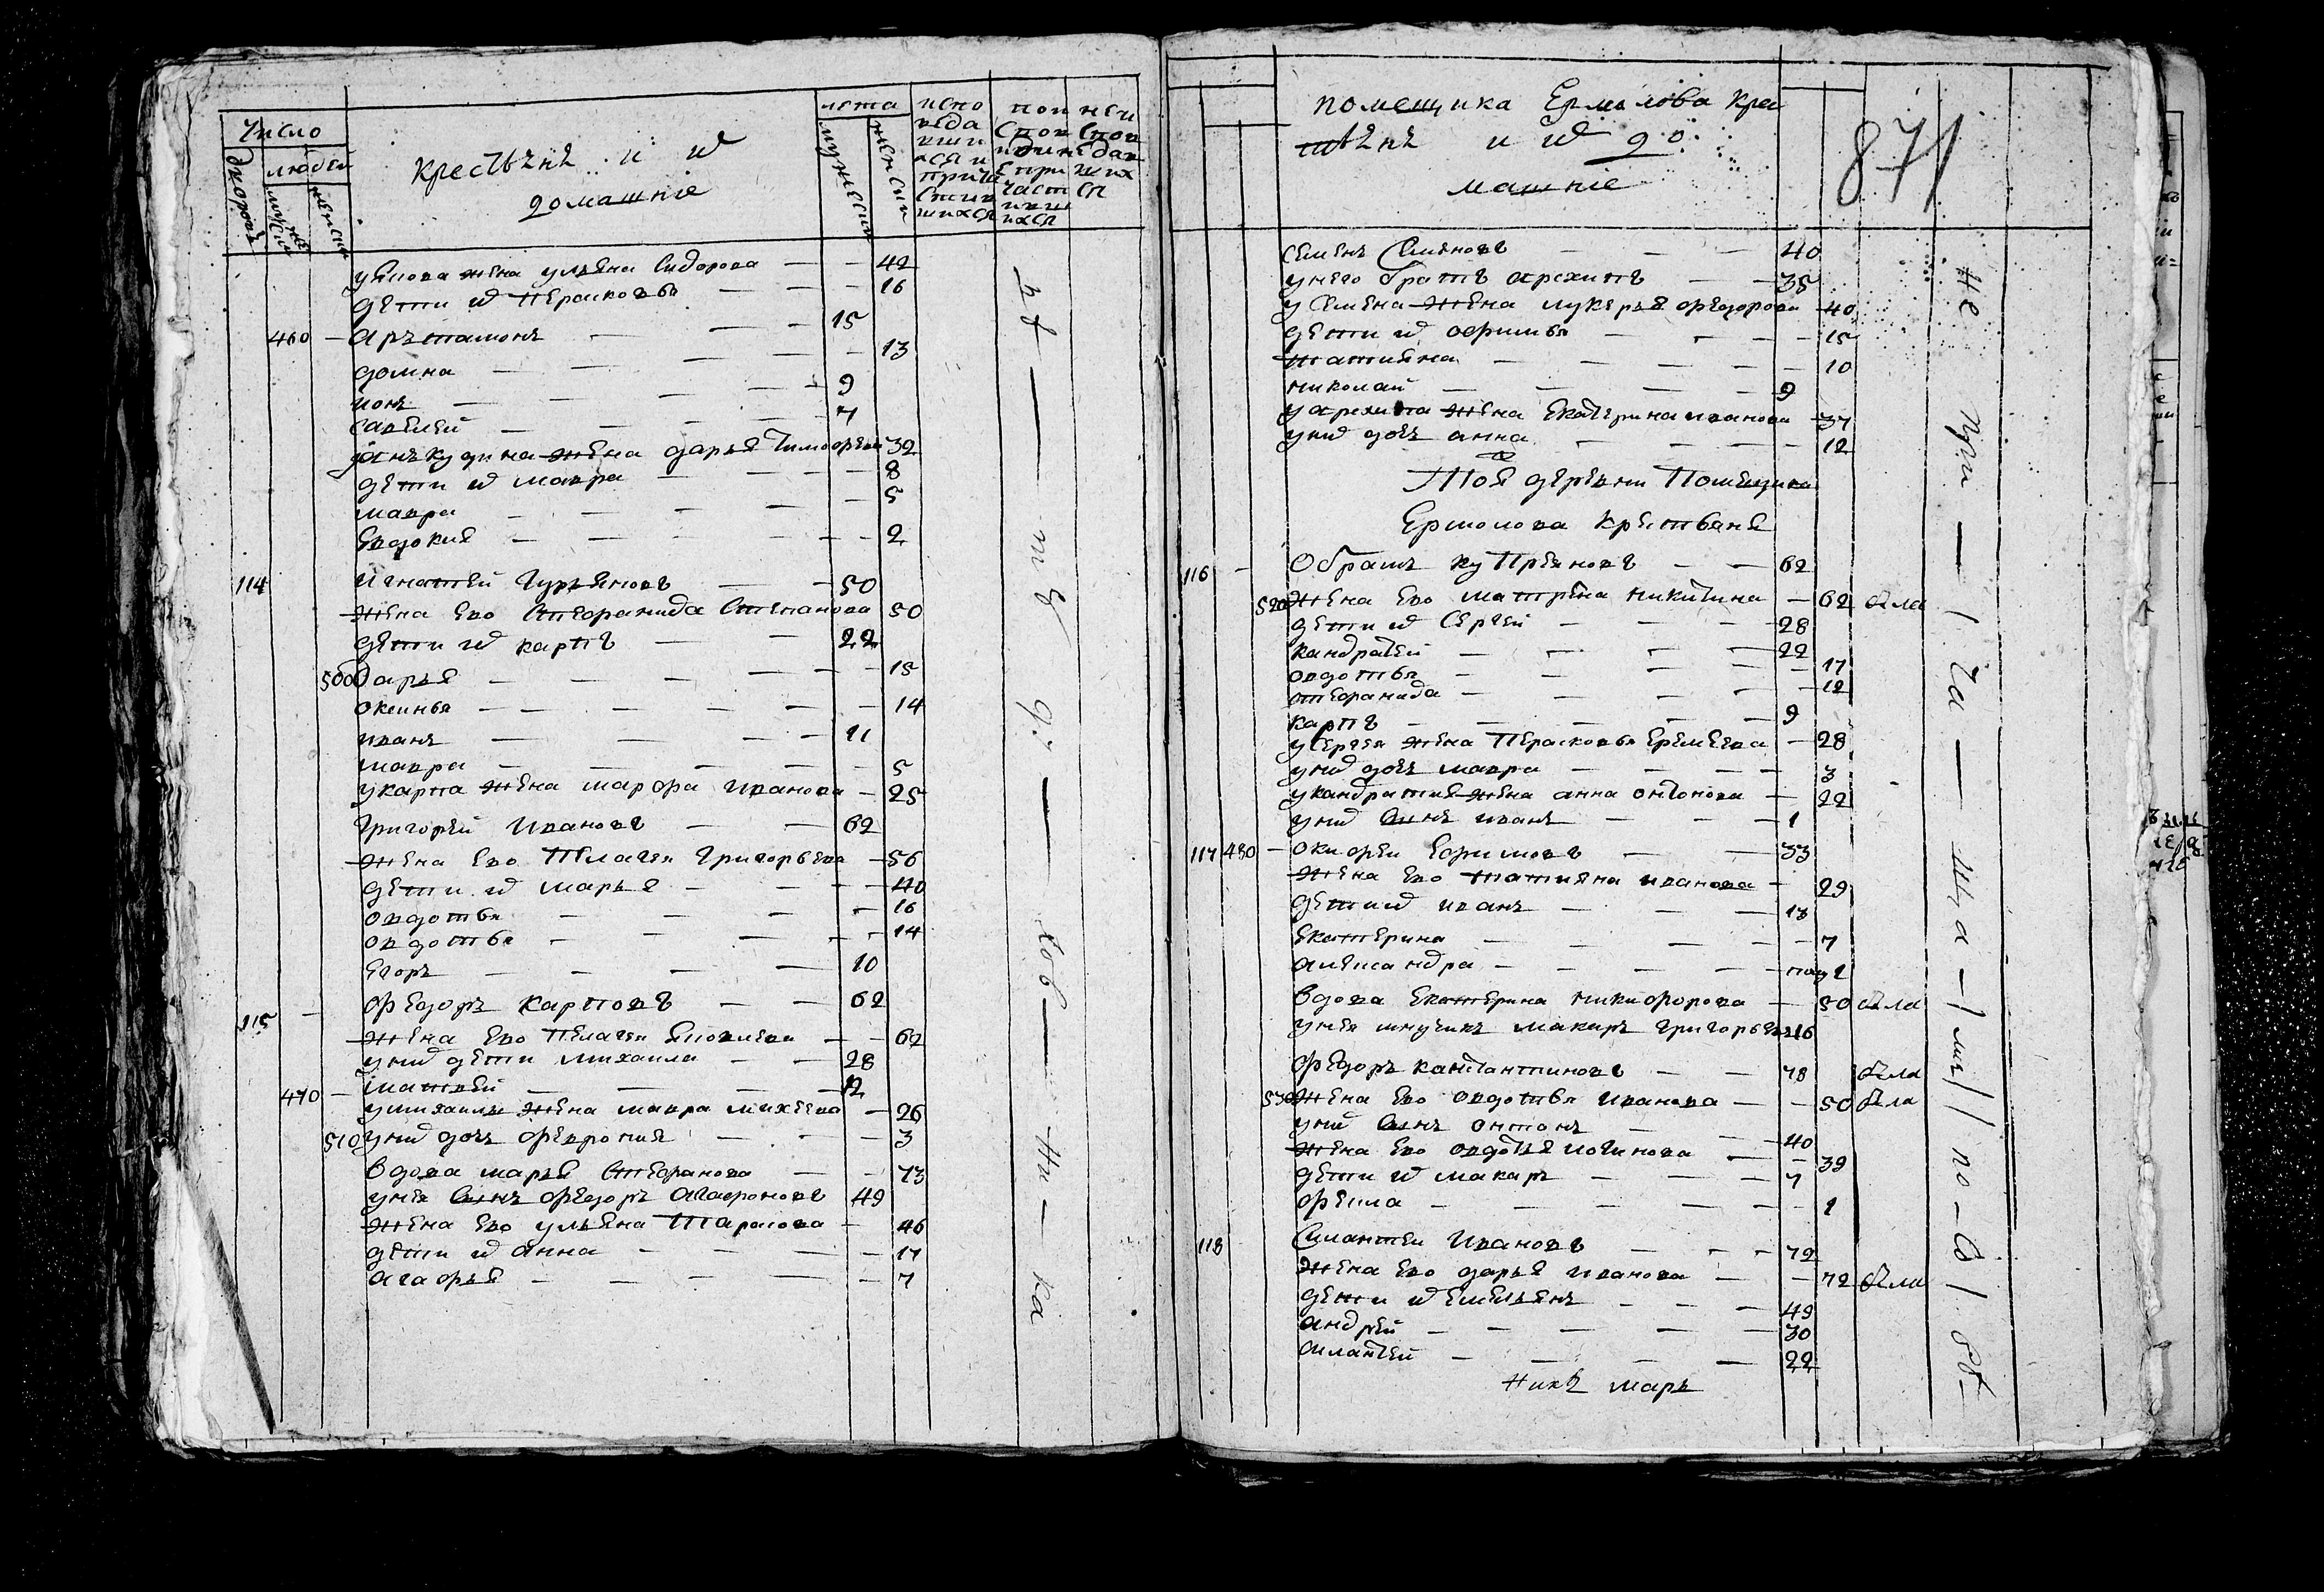 Число
дворовъ
людей
мужес
женски
крестьянъ и их
домашние
лета
мужески
женски
испо
веда
вши
хся и
прича
стив
шихся
уякова жена ульяна Сидорова — — 42
дети их Перасковья — — — 16
460 — Артамонъ — — — 15
домна — — — — 13
ионъ — — — — 9
савелей — — — — 7
уанъкудина жена дарья Тимофеева 32
дети их мавра — — — 8
мавра — — — — 5
Евдокия — — — — 2
114 игнатей Гурьяновъ — — 50
жена Ево Стефанида Степанова 50
дети их карпъ — — 22
500 дарья — — — — 15
оксинья — — — — 14
иванъ — — — — 11
мавра — — — — 5
укарпа жена марфа иванова — 25
Григорей Ивановъ — — 62
жена Ево Пелагея Григорьева — 56
дети их марья — — — 40
овдотья — — — — 16
овдотья — — — — 14
Егоръ — — — 10
115 — федоръ карповъ — — 62
жена Ево Пелагея Яковлева — — 62
уних дети михаила — — 28
470 — матвей — — — 12
умихаилы жена мавра михеева — 26
510 уних дочь феврония — — — 3
вдова марья Стефанова — — 73
унея сынъ федоръ Агафоновъ 49
жена Ево ульяна Тарасова — 46
дети их анна — — — 17
агафья — — — — 7
помещика Ермолова кре
стьянъ и их до
машние
871
семенъ Семеновъ — — — 40
унего братъ архипъ — — 35
у семена жена лукерья федорова 40
дети их офимья — — — 15
татияна — — — — 10
николай — — — — 9
уархипа жена Екатерина иванова 37
уних дочь анна — — — 12
Тоя деревни Помещика
Ермолова крестьяня
116 — Обрамъ куприяновъ — — 62
520 жена Ево матрена никитина — 62 была
дети их Сергей — — — 28
кандратей — — — 22
овдотья — — — — 17
стефанида — — — — 12
карпъ — — — — 9
усергея жена Перасковья Еремеева — 28
уних дочь мавра — — — 3
укандратия жена анна онтонова — 22
уних сынъ иванъ — — — 1
117 480 — окифеи Ефимовъ — — 33
жена Ево татияна иванова — 29
дети их иванъ — — — 13
Екатерина — — — — 7
александра — — — —
вдова Екатерина никифорова — 50 была
унея внучикъ макаръ григорьевъ 16
федоръ канстантиновъ — — 78 была
530 жена Ево овдотья иванова — — 50 была
уних сынъ онтонъ — — 40
жена Ево овдотья логинова — — 39
дети их макаръ — — — 7
фекла — — — — 1
118 Силантеи Ивановъ — — — 72
жена Ево дарья иванова — — 72 была
дети их Емельянъ — — — 49
андрей — — — — 30
силантей — — — — 22
Никъ марк